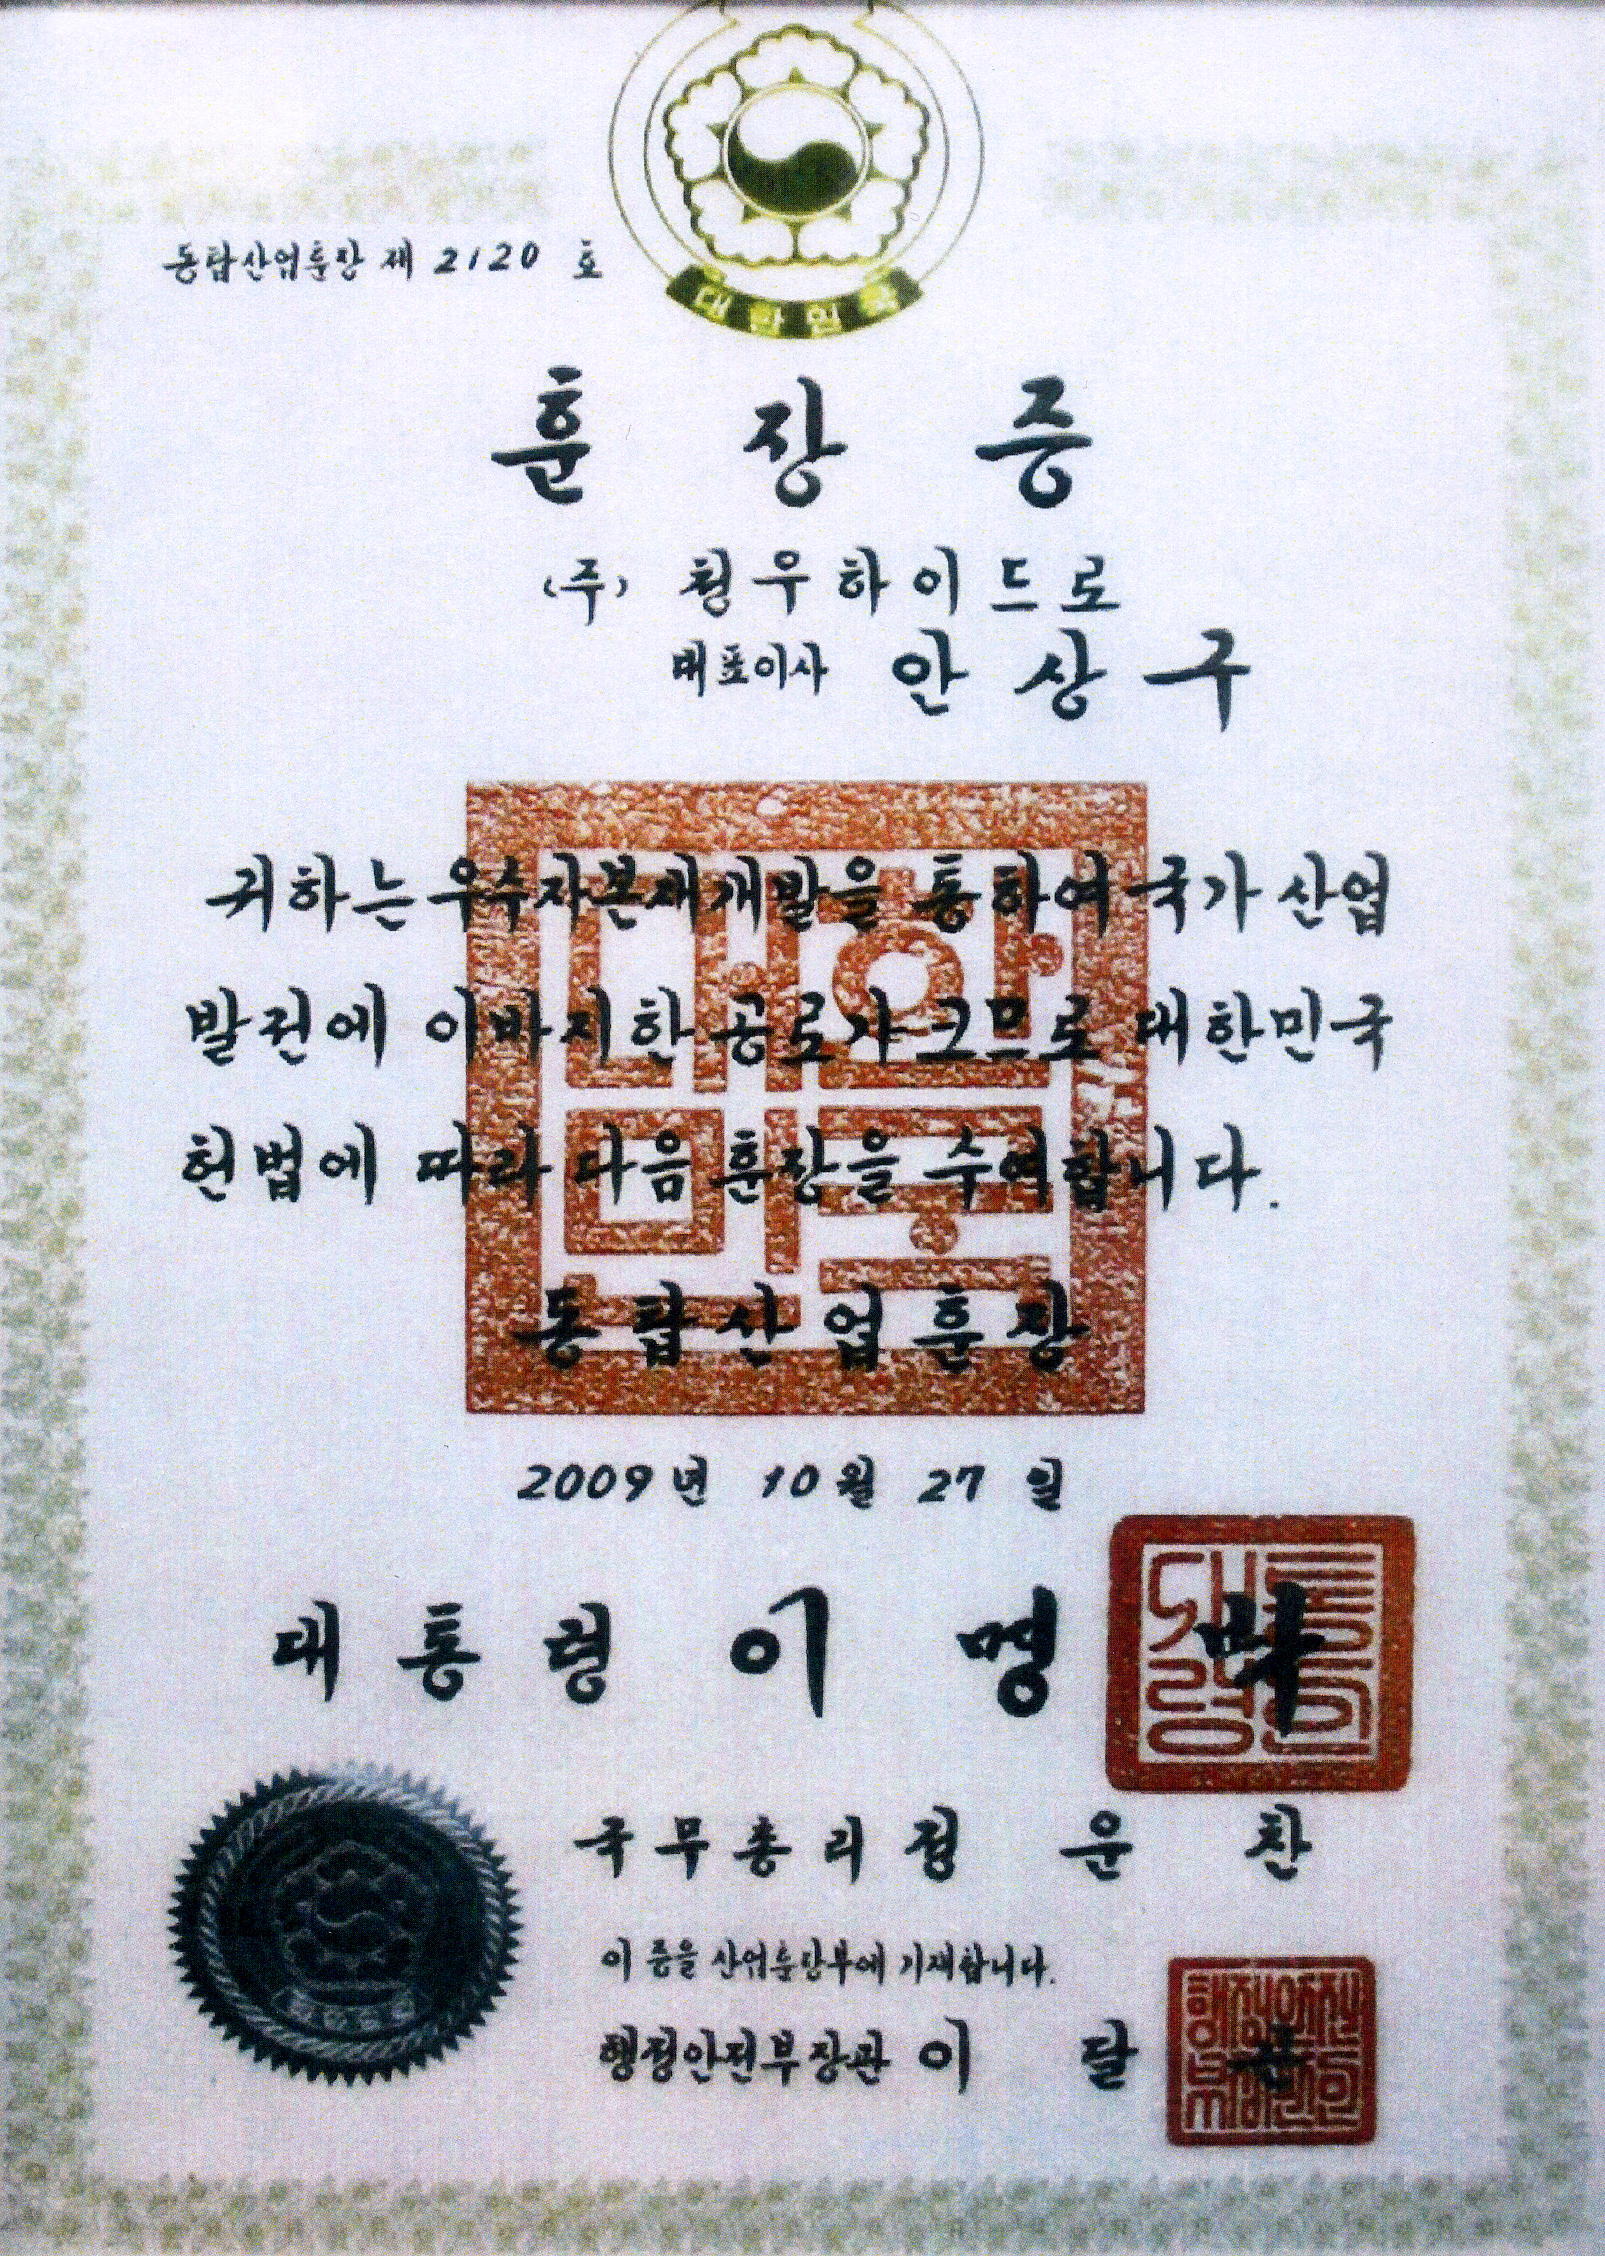 대한민국
동탑산업훈장 제 2120 호
훈장증
(주) 청우하이드로
대표이사 안상구
귀하는 우수자본재개발을 통하여 국가산업
발전에 이바지한 공로가 크므로 대한민국
헌법에 따라 다음 훈장을 수여합니다.
동탑산업훈장
2009년 10월 27일
대통령 이명박
국무총리 정운찬
이 증을 산업훈장부에 기재합니다.
행정안전부장관 이달곤